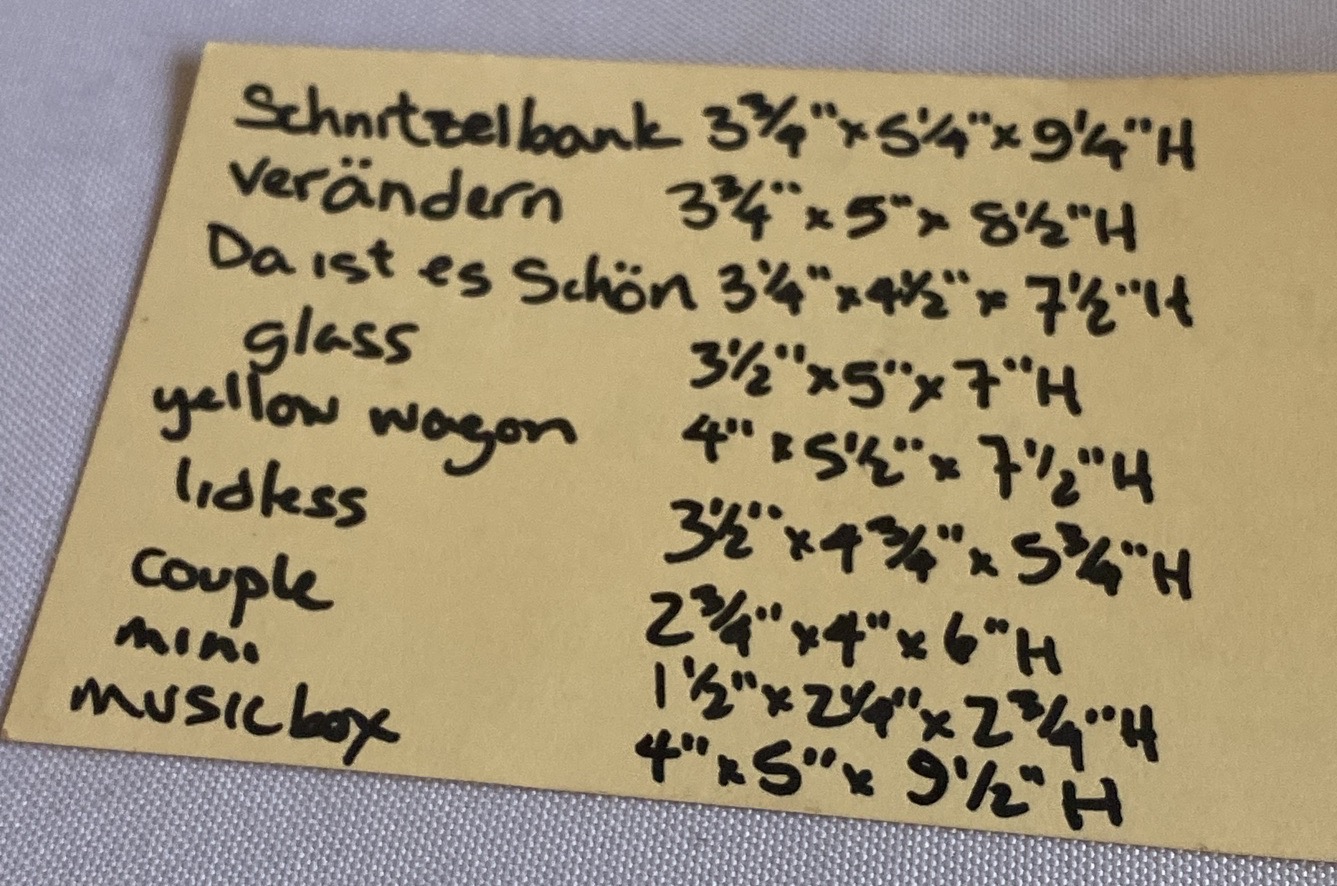 Schnitzelbank 3¾" x 5¼" x 9¼" H
verändern 3¾" x 5" x 8½" H
Da ist es Schön 3¼" x 4½" x 7½" H
glass 3½" x 5" x 7" H
yellow wagon 4" x 5½" x 7½" H
lidless 3½" x 4¾" x 5¾" H
couple 2¾" x 4" x 6" H
mini 1½" x 2¼" x 2¾" H
musicbox 4" x 5" x 9½" H